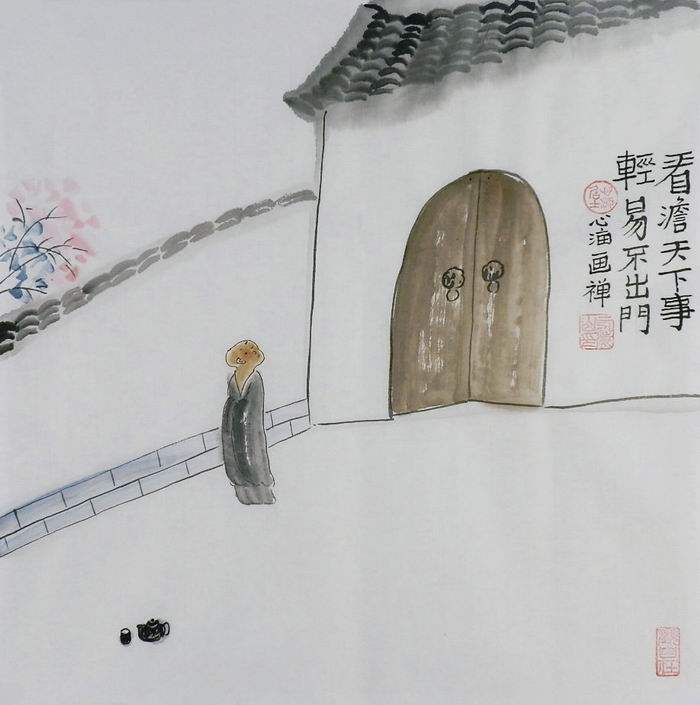 看澹天下事
輕易不出門
心海画禅